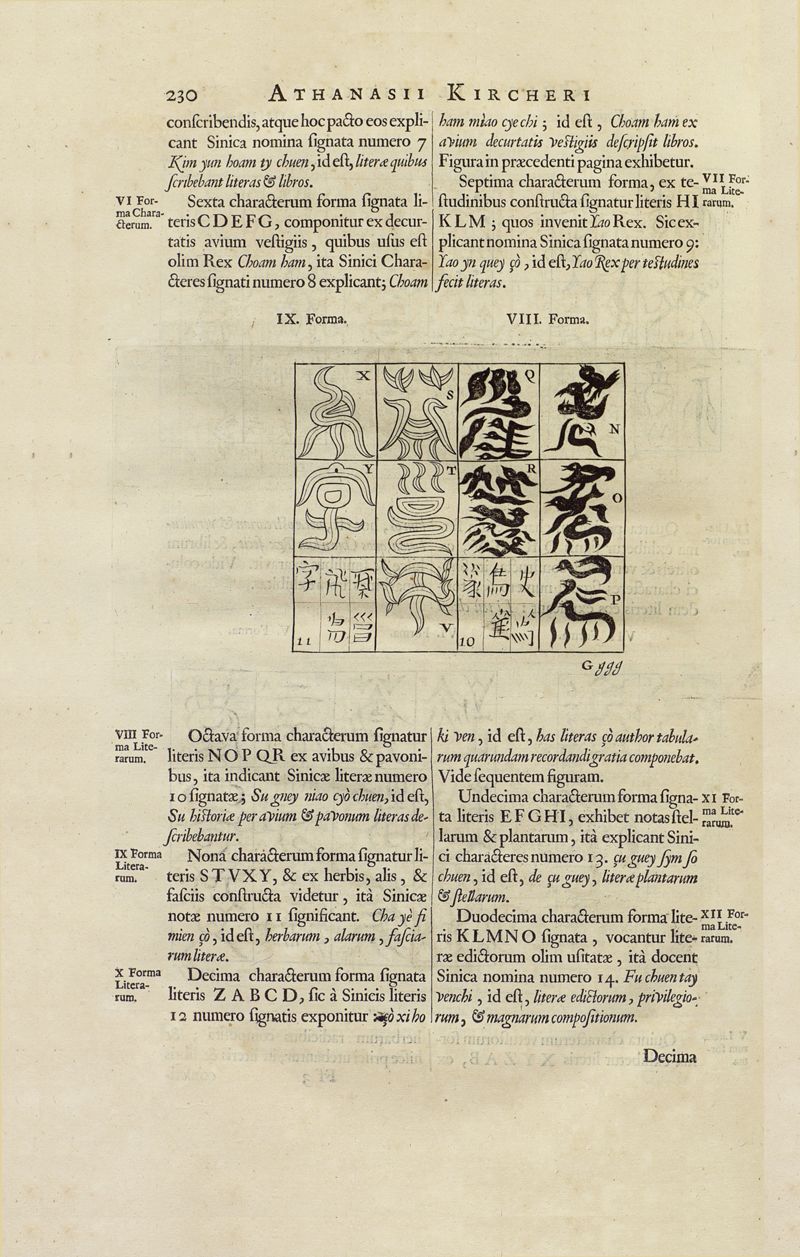 230 ATHANASII KIRCHERI
conſcribendis, atque hoc pacto eos expli-
cant Sinica nomina ſignata numero 7
Kim yun hoam ty chuen, id eſt, literæ quibus
ſcribebant literas & libros.
VI For-
ma Chara-
cterum.
Sexta characterum forma ſignata li-
teris C D E F G, componitur ex decur-
tatis avium veſtigiis, quibus uſus eſt
olim Rex Choam ham, ita Sinici Chara-
cteres ſignati numero 8 explicant; Choam
ham miao cye chi; id eſt, Choam ham ex
avium decurtatis veſtigiis deſcripſit libros.
Figura in præcedenti pagina exhibetur.
Septima characterum forma, ex te-
ſtudinibus conſtructa ſignatur literis H I
K L M; quos invenit Yao Rex. Sic ex-
plicant nomina Sinica ſignata numero 9:
Yao yn quey çò, id eſt, Yao Rex per teſtudines
fecit literas.
VII For-
ma Lite-
rarum.
IX. Forma. VIII. Forma.
X S Q N
Y T R O
V P
字
11 10
Gggg
VIII For-
ma Lite-
rarum.
Octava forma characterum ſignatur
literis N O P Q R ex avibus & pavoni-
bus, ita indicant Sinicæ literæ numero
10 ſignatæ; Su gney niao cyò chuen, id eſt,
Su hiſtoriæ per avium & pavonum literas de-
ſcribebantur.
IX Forma
Litera-
rum.
Nona characterum forma ſignatur li-
teris S T V X Y, & ex herbis, alis, &
faſciis conſtructa videtur, ità Sinicæ
notæ numero 11 ſignificant. Cha yè fi
mien çò, id eſt, herbarum, alarum, faſcia-
rum literæ.
X Forma
Litera-
rum.
Decima characterum forma ſignata
literis Z A B C D, ſic à Sinicis literis
12 numero ſignatis exponitur çò xi ho
ki ven, id eſt, has literas çò author tabula-
rum quarundam recordandi gratia componebat.
Vide ſequentem figuram.
Undecima characterum forma ſigna-
ta literis E F G H I, exhibet notas ſtel-
larum & plantarum, ità explicant Sini-
ci characteres numero 13. çu guey ſym ſo
chuen, id eſt, de çu guey, literæ plantarum
& ſtellarum.
XI For-
ma Lite-
rarum.
Duodecima characterum forma lite-
ris K L M N O ſignata, vocantur lite-
ræ edictorum olim uſitatæ, ità docent
Sinica nomina numero 14. Fu chuen tay
venchi, id eſt, literæ edictorum, privilegio-
rum, & magnarum compoſitionum.
XII For-
ma Lite-
rarum.
Decima